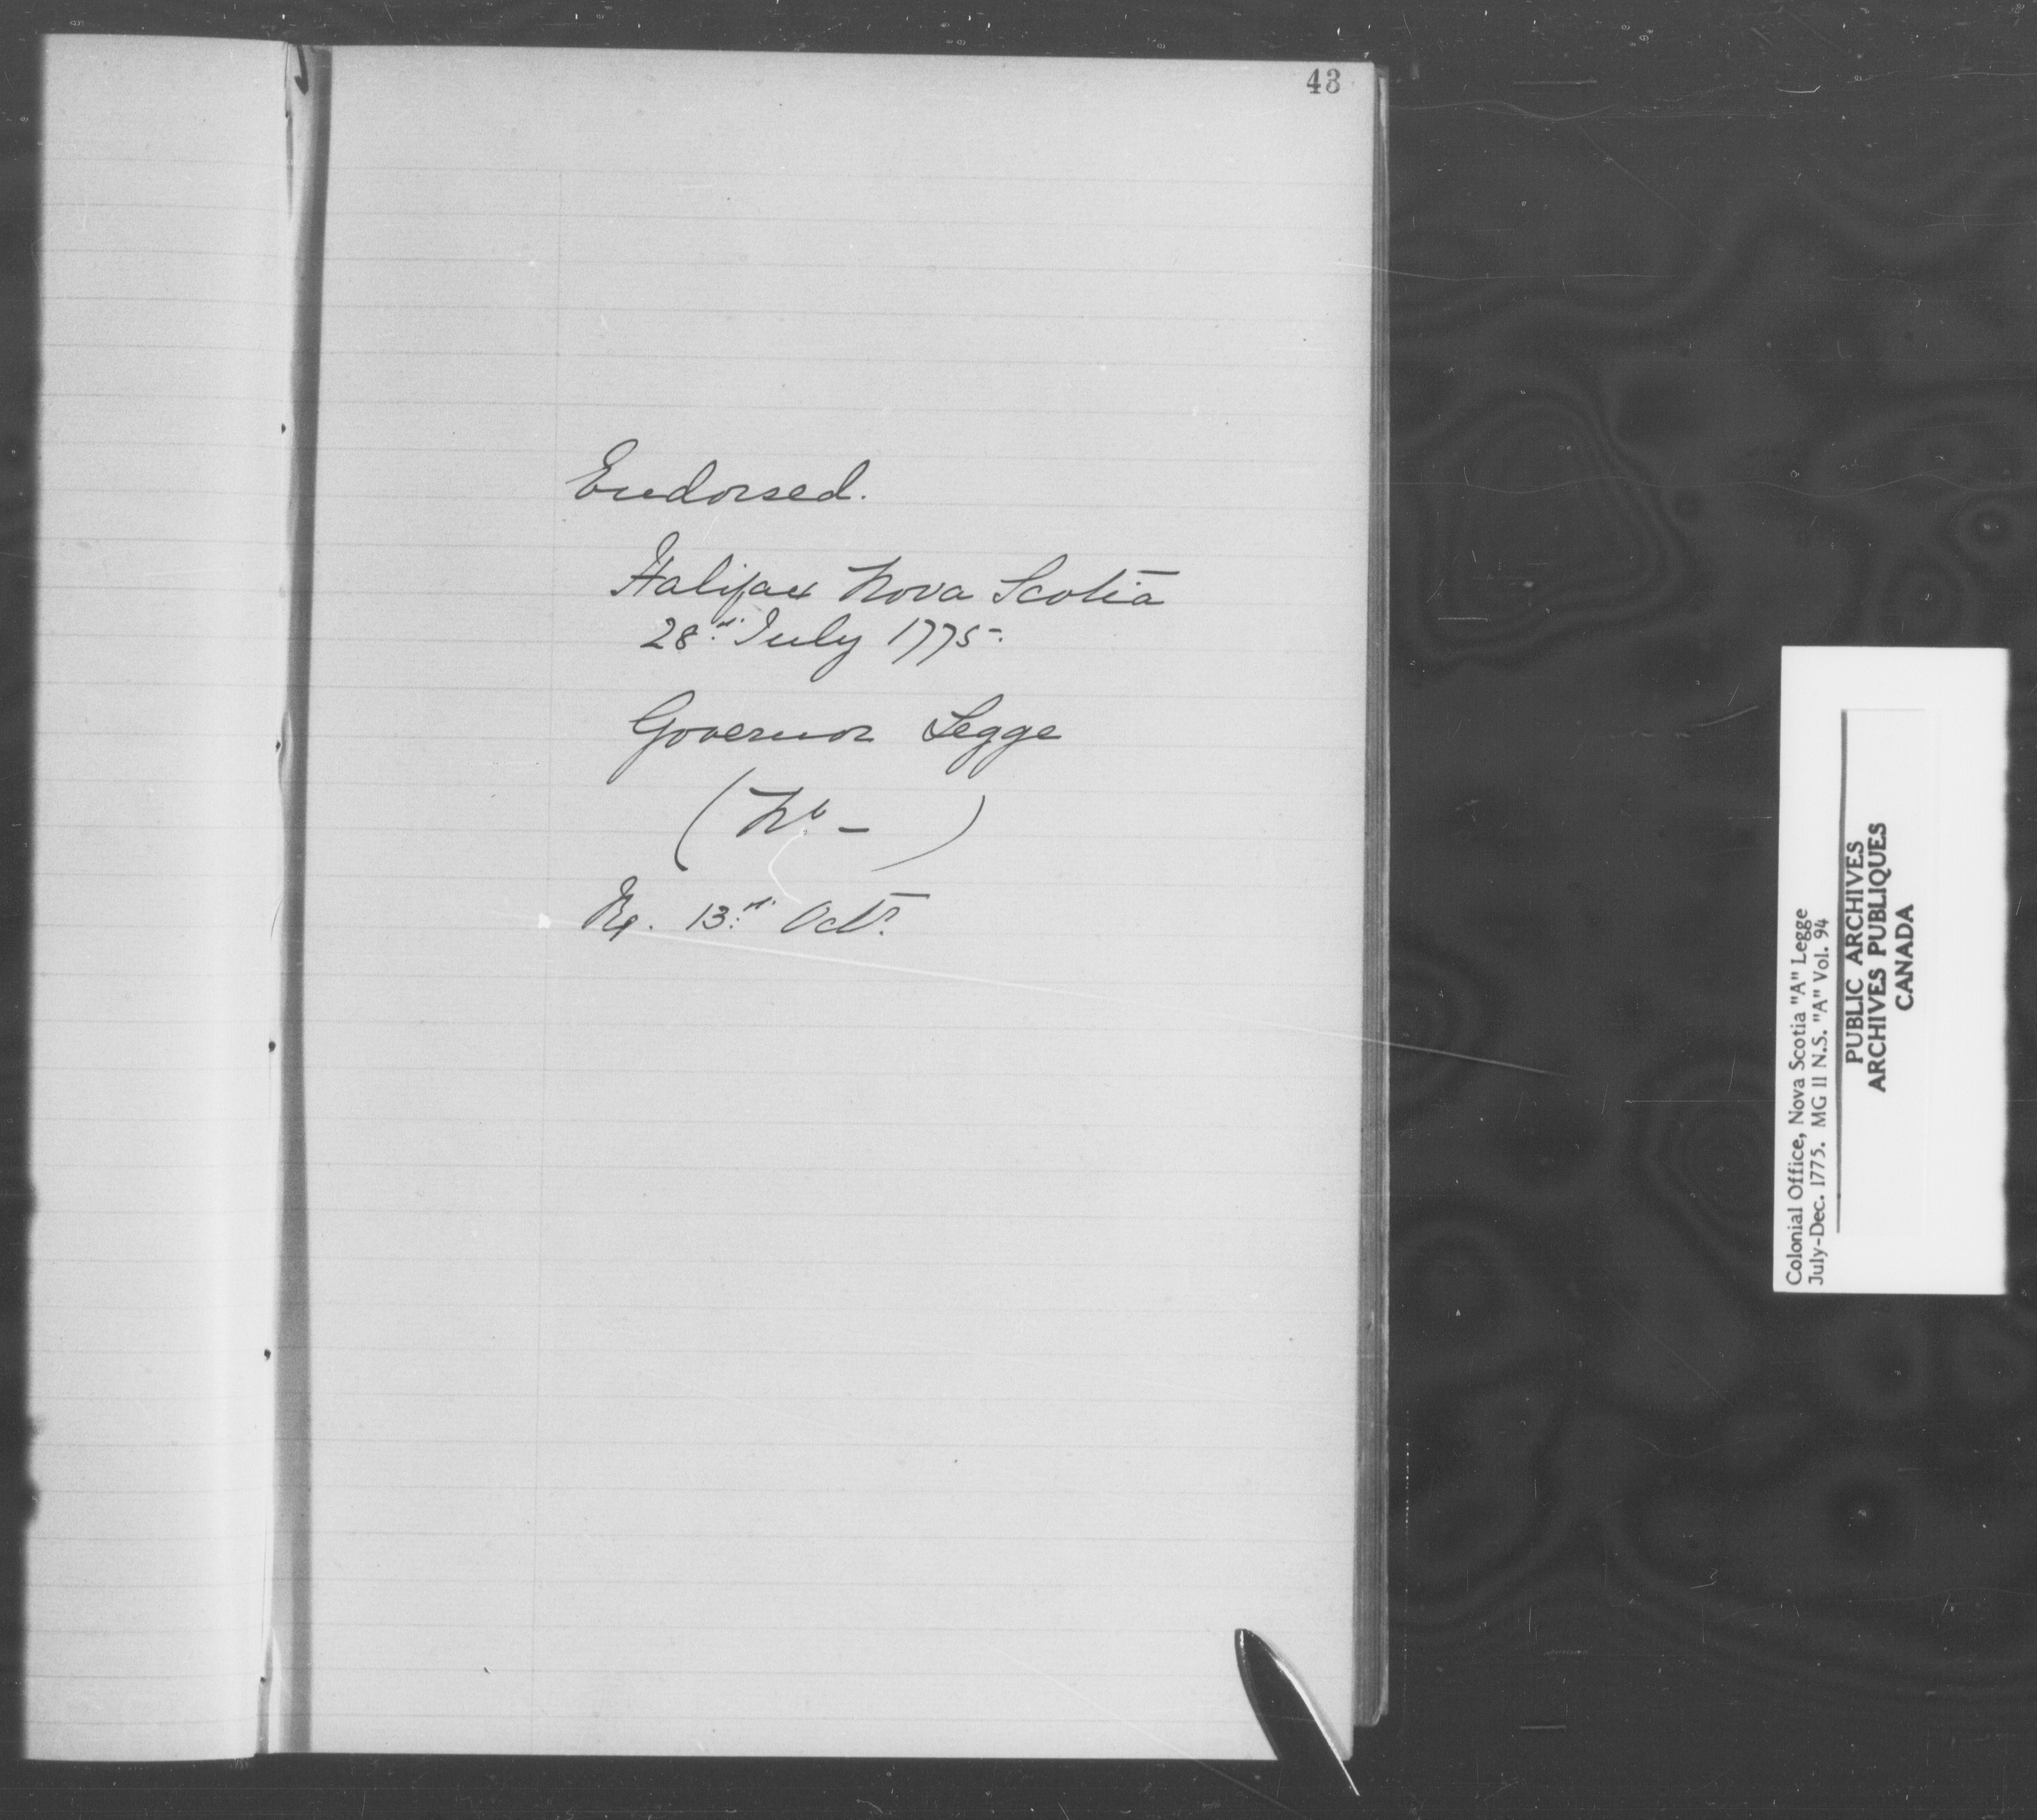 43
Endorsed.
Halifax Nova Scotia
28th July 1775.
Governor Legge
(No. - )
Rx. 13th Octr.
Colonial Office, Nova Scotia "A" Legge
July-Dec. 1775. MG 11 N.S. "A" Vol. 94
PUBLIC ARCHIVES
ARCHIVES PUBLIQUES
CANADA